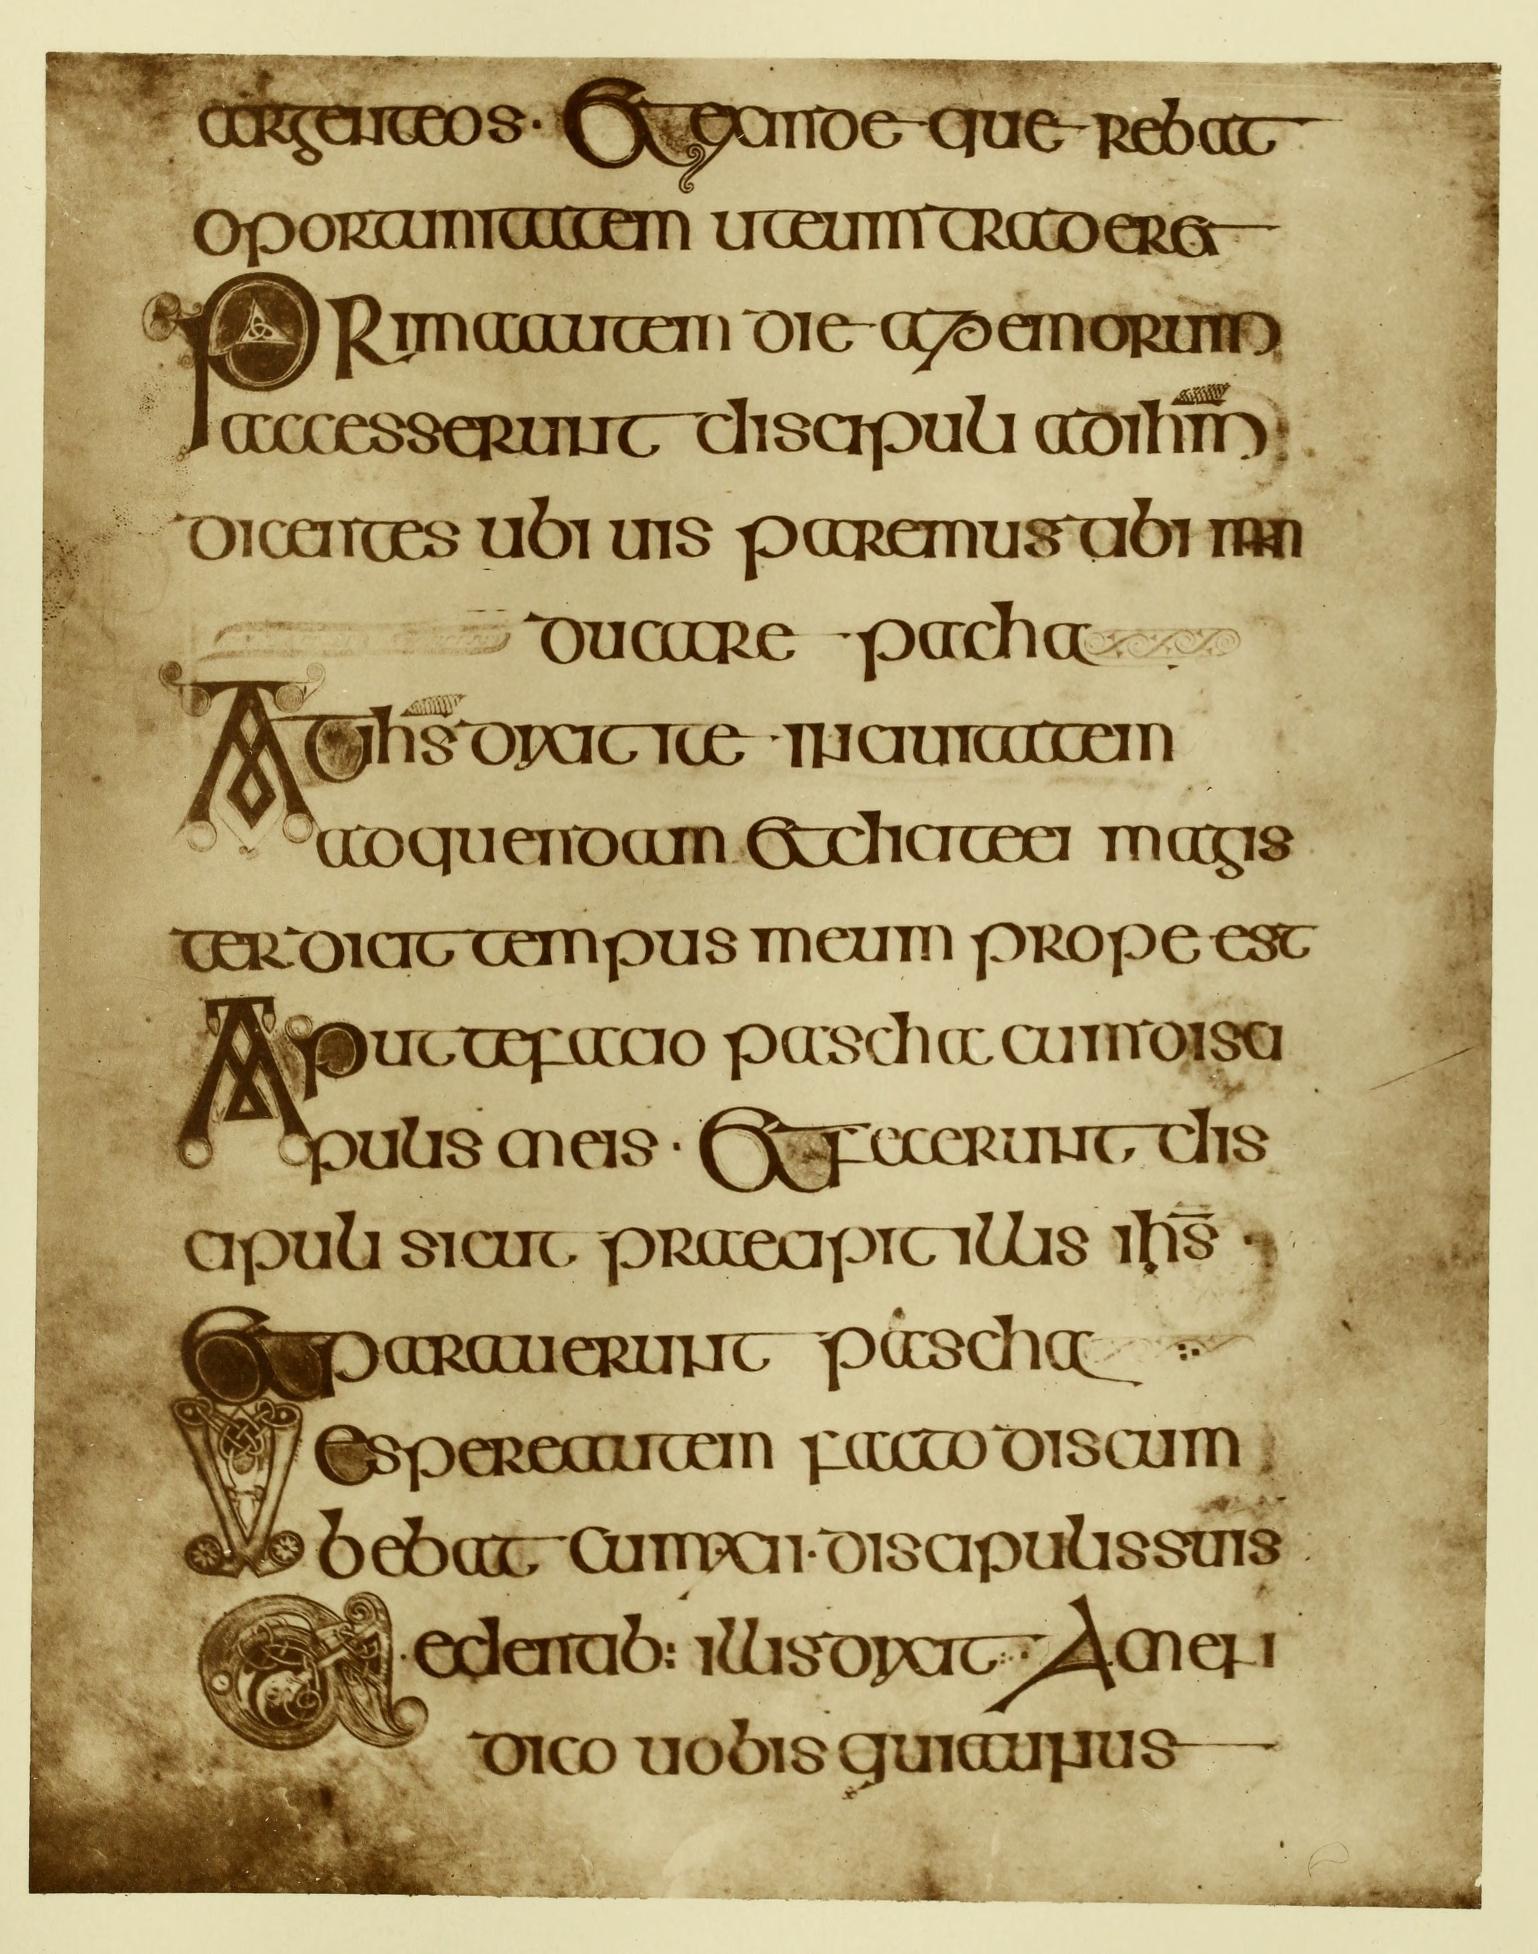 argenteos · Et exinde querebat
oportunitatem ut eum traderet
Prima autem die azemorum
accesserunt discipuli ad ihm̅
dicentes ubi uis paremus tibi man
ducare pacha
At ihs̅ dixit ite in ciuitatem
ad quendam et dicite ei magis
ter dicit tempus meum prope est
Aput te facio pascha cum disci
pulis meis · Et fecerunt dis
cipuli sicut praecipit illis ihs̅ ·
Et parauerunt pascha
Vespere autem facto discum
bebat cum · xii · discipulis suis
Et edentib: illis dixit Amen
dico uobis quia unus